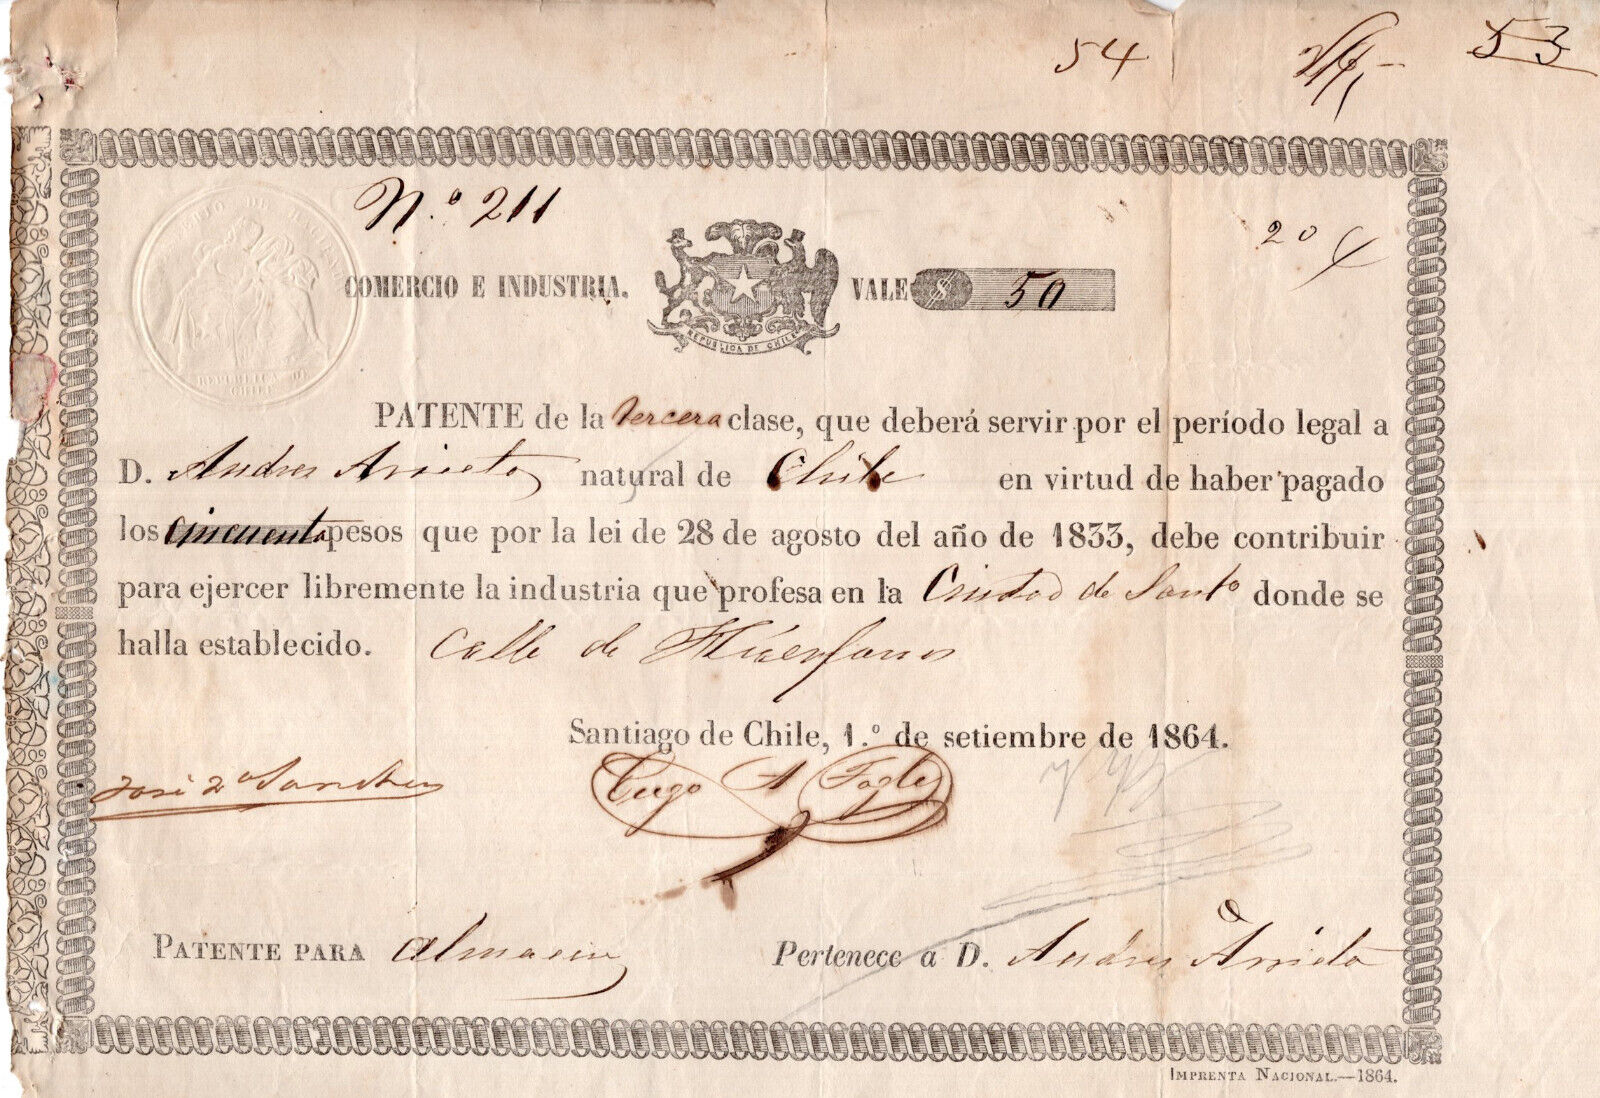 54 53
N.º 211
20
COMERCIO E INDUSTRIA. VALE $ 50
REPUBLICA DE CHILE
REPUBLICA DE
CHILE
PATENTE de la tercera clase, que deberá servir por el período legal a
D. Andres Arrieta natural de Chile en virtud de haber pagado
los cincuenta pesos que por la lei de 28 de agosto del año de 1833, debe contribuir
para ejercer libremente la industria que profesa en la Ciudad de Santº donde se
halla establecido. Calle de Húerfanos
Santiago de Chile, 1.º de setiembre de 1864.
José 2º Sanchez
A Tagle
PATENTE PARA almacen Pertenece a D. Andres Arrieta
IMPRENTA NACIONAL.—1864.